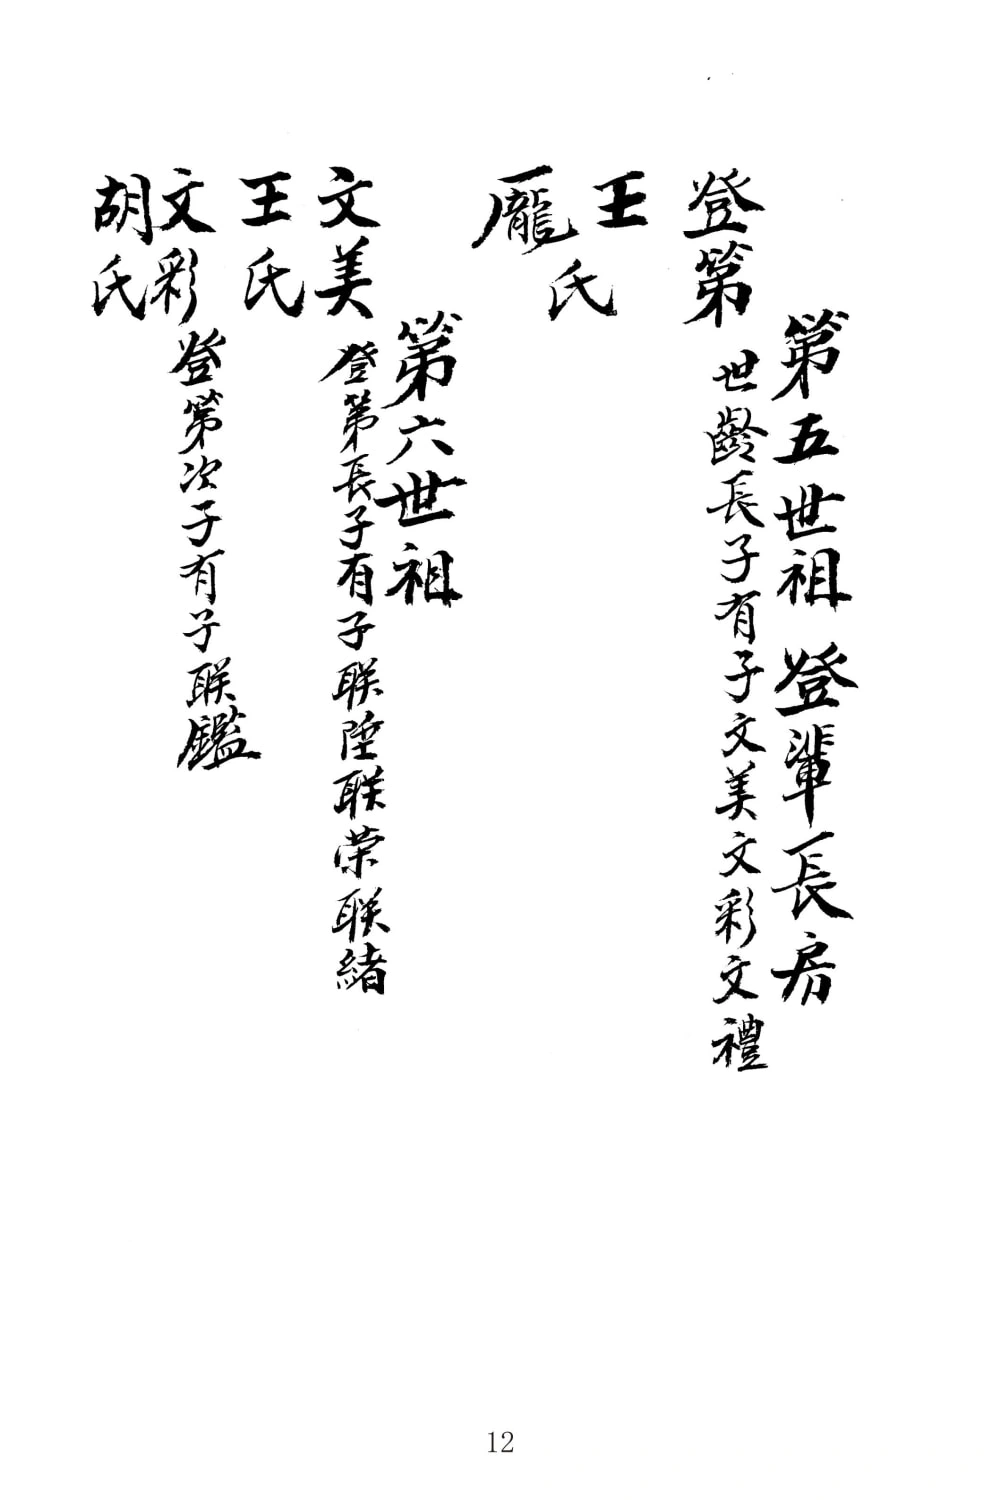 第五世祖 登輩長房
登第 世齡長子有子文美文彩文禮
王
龐
氏
第六世祖
文美 登第長子有子联陞联荣联緒
王氏
文彩 登第次子有子联鑑
胡氏
12